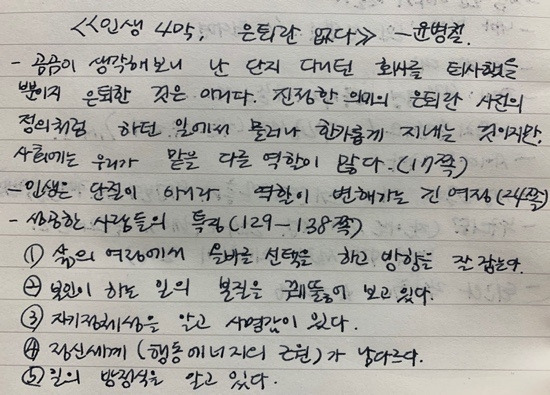 ≪인생 4막, 은퇴란 없다≫ - 윤병철.
- 곰곰이 생각해보니 난 단지 다니던 회사를 퇴사했을
뿐이지 은퇴한 것은 아니다. 진정한 의미의 은퇴란 사전의
정의처럼 하던 일에서 물러나 한가롭게 지내는 것이지만,
사회에는 우리가 맡을 다른 역할이 많다. (17쪽)
- 인생은 단절이 아니라 역할이 변해가는 긴 여정 (24쪽)
- 성공한 사람들의 특징 (129-138쪽)
① 삶의 여정에서 올바른 선택을 하고 방향을 잘 잡는다.
② 본인이 하는 일의 본질을 꿰뚫어 보고 있다.
③ 자기정체성을 알고 사명감이 있다.
④ 정신세계 (행동에너지의 근원)가 남다르다.
⑤ 일의 방정식을 알고 있다.